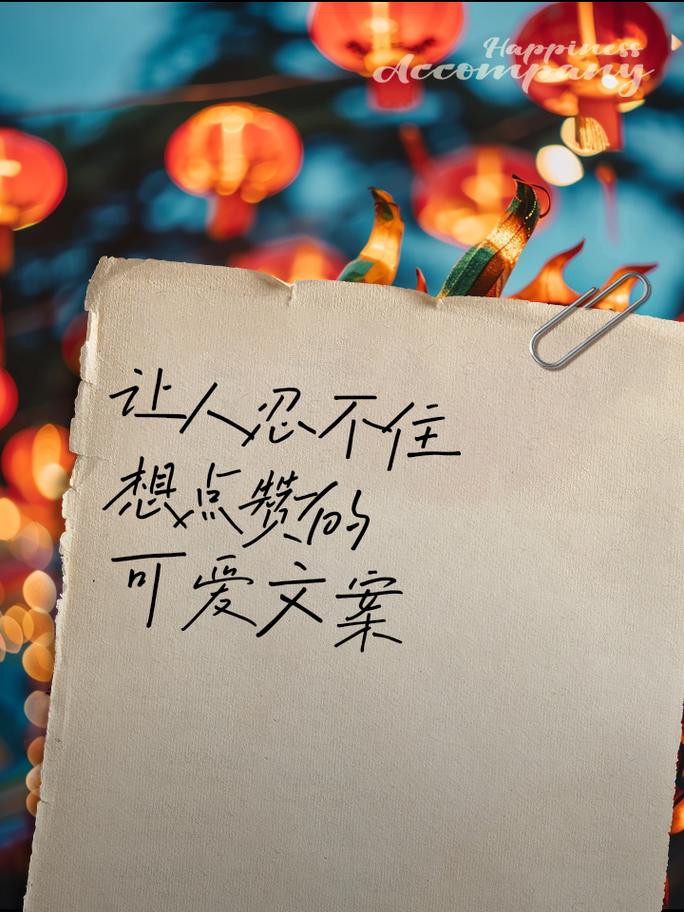 Happiness
Accompany
让人忍不住
想点赞的
可爱文案